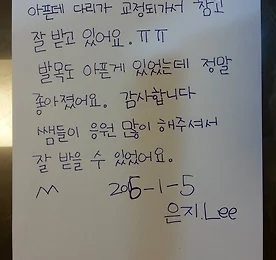 아픈데 다리가 교정되가서 참고
잘 받고 있어요.ㅠㅠ
발목도 아픈게 있었는데 정말
좋아졌어요. 감사합니다
쌤들이 응원 많이 해주셔서
잘 받을 수 있었어요.
2015-1-5
은지.Lee